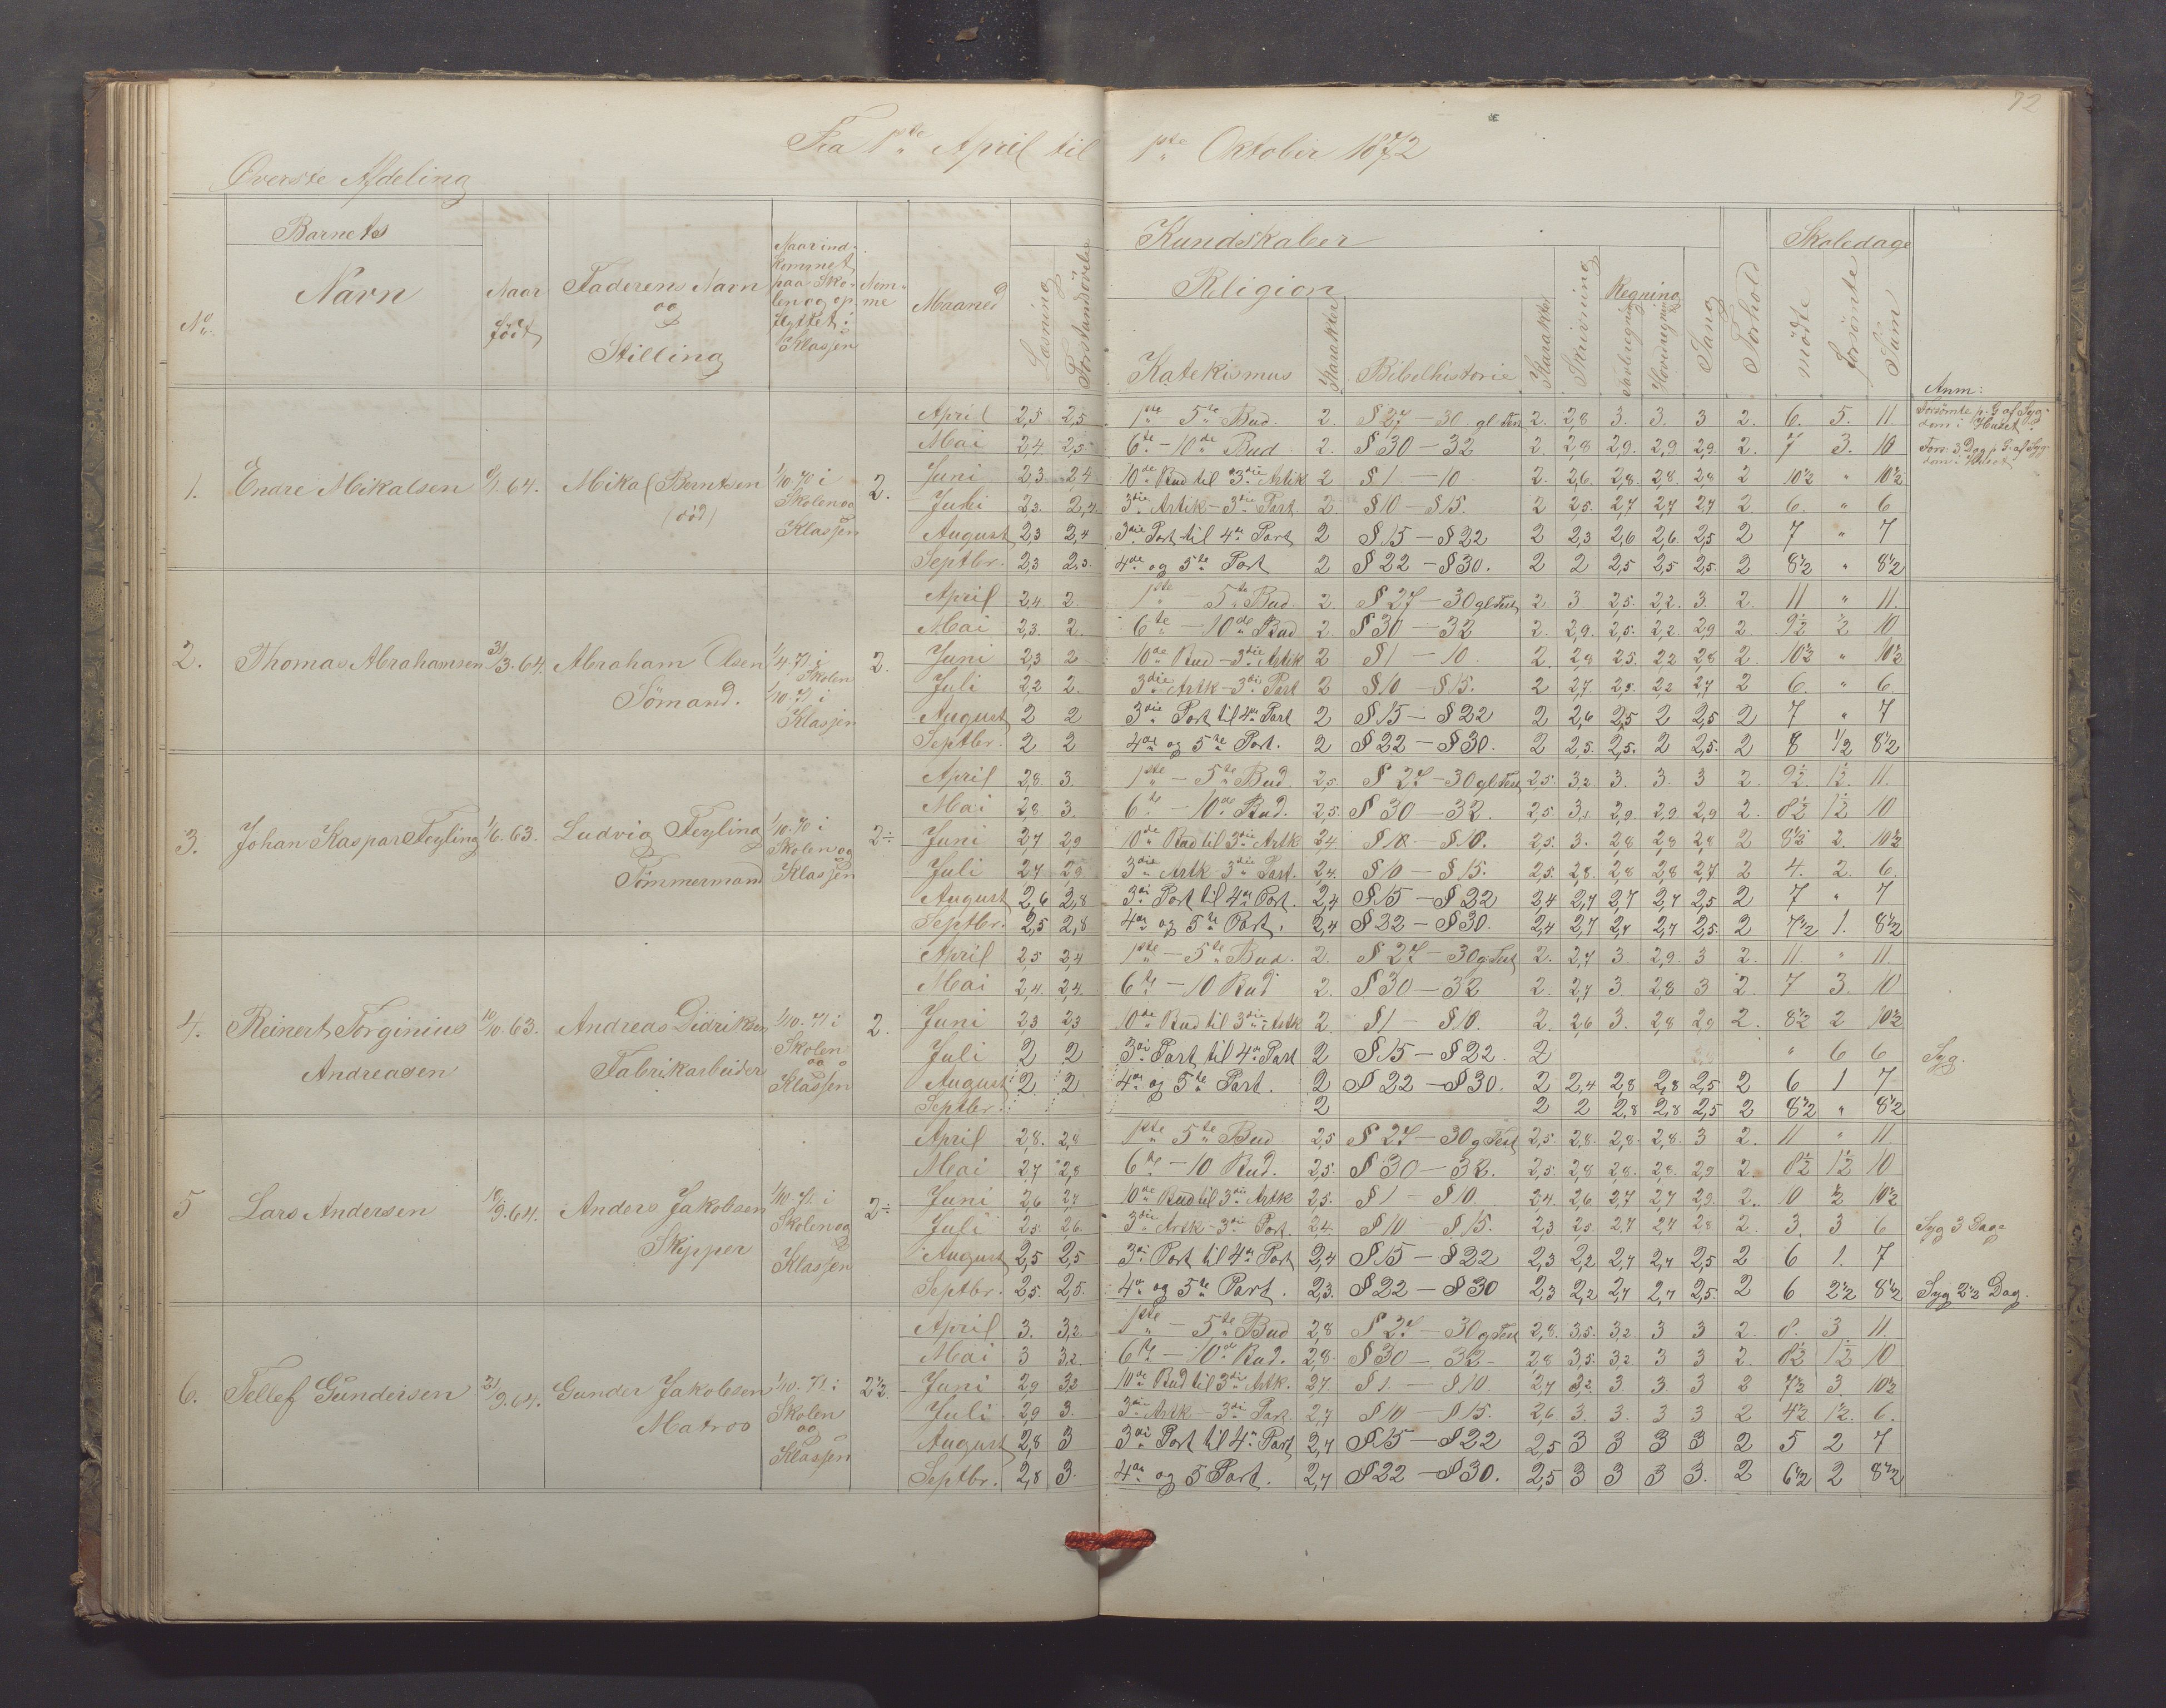 72
Fra 1ste April til 1ste Oktober 1872
Øverste Afdeling
No.
Barnets
Navn
Naar født
Faderens Navn og Stilling
Naar indkommet paa Skolen og opflyttet i Klassen
Nemme
Maaned
Kundskaber
Læsning
Forstandsövelse
Religion
Katekismus
Karakter
Bibelhistorie
Karakter
Skrivning
Regning
Tavleregning
Hovedregning
Sang
Forhold
Skoledage
mödte
forsömte
Sum
Anm:
1. Endre Mikalsen 64. Mikal Berntsen (död) 1/10.70 i Skolen og Klassen 2.
April 2,5 2,5 1ste 5te Bud. 2. § 27 – 30 gl Test 2. 2,8 3. 3. 3 2. 6. 5. 11. Forsömte p. G af Sygdom i Huset
Mai 2,4 2,5 6te – 10de Bud 2. § 30 – 32 2. 2,8 2,9. 2,9 2,9. 2. 7 3. 10 Fors. 3 Dag p. G. af Sygdom i Huset
Juni 2,3 2,4 10de Bud til 3die Artik 2 § 1 – 10 2. 2,6. 2,8. 2,8. 2,8 2 10½ " 10½
Juli 2,3. 2,4. 3die Artik – 3die Part. 2. § 10 – § 15. 2 2,5. 2,7 2,7 2,7 2. 6. " 6
August 2,3 2,4 3die Part til 4de Part 2 § 15 – § 22 2 2,3 2,6 2,6 2,5 2 7 " 7
Septbr. 2,3 2,3. 4de og 5te Part 2 § 22 – § 30. 2 2 2,5 2,5 2,5. 2 8½ " 8½
2. Thomas Abrahamsen 31/3.64. Abraham Olsen Sömand. 1/4.71 i Skolen 1/10.71 i Klassen 2.
April 2,4 2. 1ste – 5te Bud. 2. § 27 – 30 gl Test 2 3 2,5. 2,2. 3. 2. 11 " 11.
Mai 2,3. 2. 6te – 10de Bud 2. § 30 – 32 2. 2,9. 2,5. 2,2. 2,9 2. 9½ ½ 10
Juni 2,3 2 10de Bud – 3die Artik 2 § 1 – 10 2. 2,8 2,5. 2,2 2,8 2. 10½ " 10½
Juli 2,2 2. 3die Artk – 3di Part 2 § 10 – § 15. 2 2,7. 2,5. 2,2 2,7 2 6. " 6.
August 2 2 3die Part til 4de Part 2 § 15 – § 22 2 2,6 2,5 2 2,5 2 7 " 7
Septbr. 2 2 4de og 5te Part. 2 § 22 – § 30. 2 2,5. 2,5. 2 2,5. 2 8 1/2 8½
3. Johan Kaspar Feyling 1/6.63. Ludvig Feyling Tömmermand 1/10.70 i Skolen og Klassen 2÷
April 2,8. 3. 1ste – 5te Bud. 2,5. § 27 – 30 gl Test 2,5. 3,2. 3. 3. 3 2. 9½. 1½. 11.
Mai 2,8. 3. 6te – 10de Bud. 2,5. § 30 – 32. 2,5. 3,1. 2,9. 2,9. 2,9 2. 8½ 1½ 10
Juni 2,7 2,9 10de Bud til 3die Artk 2,4. § 1 – § 10. 2,5. 3. 2,8 2,8 2,8 2 8½ 2. 10½
Juli 2,7 2,9 3die Artk – 3die Part. 2,4. § 10 – § 15. 2,5. 2,8. 2,8 2,8 2,7 2 4. 2. 6.
August 2,6 2,8 3di Part til 4de Part. 2,4 § 15 – § 22 2,4 2,7 2,7 2,7 2,5 2 7 " 7
Septbr. 2,5 2,8 4de og 5te Part. 2,4 § 22 – § 30. 2,4 2,7 2,7 2,7 2,5. 2 7½ 1. 8½
4. Reinert Torginius Andreasen 10/10.63. Andreas Didriksen Fabrikarbeider 1/10.71 i Skolen og Klassen 2.
April 2,5 2,4 1ste – 5te Bud. 2. § 27 – 30 g. Test 2. 2,7 3 2,9. 3 2. 11 " 11.
Mai 2,4. 2,4. 6te – 10 Bud 2. § 30 – 32 2. 2,7 3. 2,8 3 2. 7 3. 10
Juni 2,3 2,3 10de Bud til 3die Artk 2. § 1 – § 10. 2. 2,6 3. 2,8 2,9 2. 8½ 2 10½
Juli 2 2 3di Part til 4de Part 2 § 15 – § 22. 2 " 6 6 Syg.
August 2 2 4de og 5te Part. 2 § 22 – § 30. 2 2,4 2,8 2,8 2,5 2 6 1 7
Septbr. 2 2 2 2,8 2,8 2,5 2 8½ " 8½
5 Lars Andersen 18/9.64. Anders Jakobsen Skipper 1/10.71 i Skolen og Klassen 2÷
April 2,8. 2,8 1ste 5te Bud 2,5 § 27 – 30 g Test 2,5. 2,8. 2,8. 2,8. 3 2. 11 " 11.
Mai 2,7 2,8 6te – 10 Bud. 2,5. § 30 – 32. 2,5. 2,8 2,8. 2,8. 2,9 2. 8½ 1½ 10
Juni 2,6 2,7 10de Bud til 3die Artk 2,5. § 1 – § 10 2,4. 2,6 2,7 2,7 2,9. 2. 10 ½ 10½
Juli 2,5. 2,6. 3die Artk – 3die Part. 2,4. § 10 – § 15. 2,3 2,5. 2,7 2,7 2,8 2. 3. 3 6 Syg 3 Dage
August 2,5 2,5 3di Part til 4de Part 2,4 § 15 – § 22 2,3 2,2 2,7 2,7 2,5 2 6 1. 7
Septbr. 2,5. 2,5. 4de og 5te Part. 2,3. § 22 – § 30 2,3 2,2 2,7 2,7 2,5. 2 6 2½ 8½ Syg 2½ Dag.
6. Tellef Gundersen 21/9.64. Gunder Jakobsen Matros 1/10.71 i Skolen og Klassen 2½.
April 3. 3,2. 1ste – 5te Bud 2,8 § 27 – 30 g Test 2,8. 3,5. 3,2. 3 3 2. 8. 3 11.
Mai 3 3,2. 6te – 10de Bud. 2,8. § 30 – 32 – 2,8 3,5. 3,2. 3 3 2. 8½ 1½ 10
Juni 2,9 3,2 10de Bud til 3di Artk. 2,7 § 1. – § 10. 2,7 3,2. 3. 3. 3 2 7½ 3. 10½
Juli 2,9 3. 3die Artk – 3di Part. 2,7 § 10 – § 15. 2,6 3. 3. 3 3 2 4½ 1½. 6.
August 2,8 3 3di Part til 4de Part 2,7 § 15 – § 22 2,5 3 3 3 3 2 5 2 7
Septbr. 2,8 3. 4de og 5 Part. 2,7 § 22 – § 30. 2,5 3 3 3 3. 2 6½ 2 8½